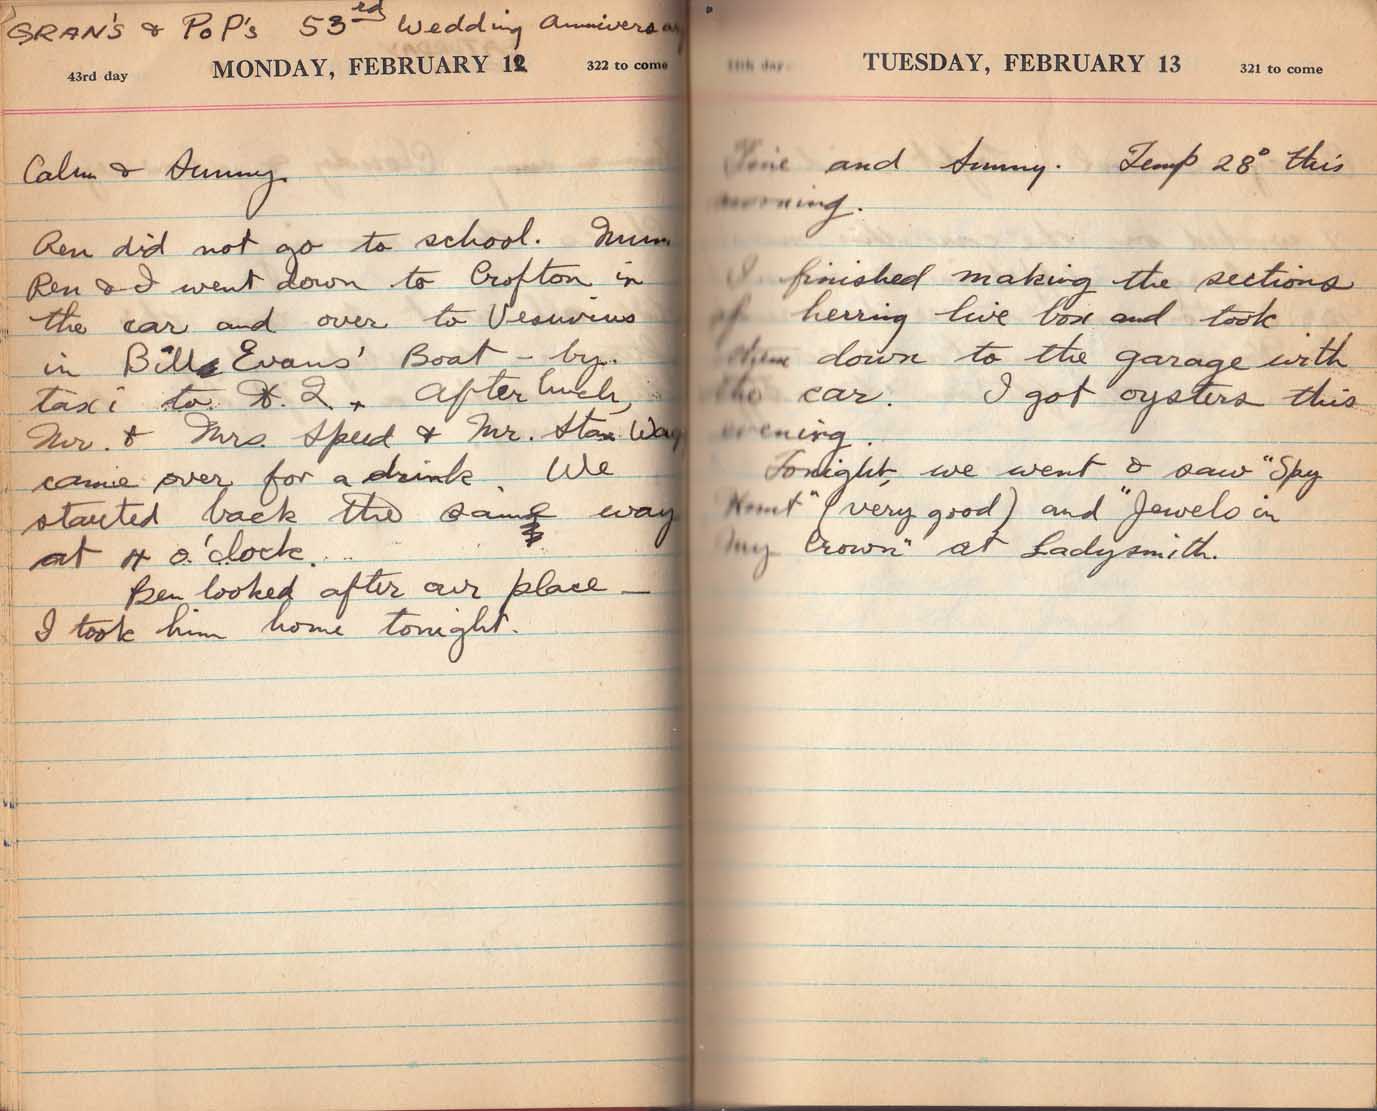 GRAN'S & POP'S 53rd Wedding Anniversary
43rd day MONDAY, FEBRUARY 12 322 to come
Calm & Sunny.
Ren did not go to school. Mum
Ren & I went down to Crofton in
the car and over to Vesuvius
in Bill Evans' Boat – by
taxi to H.Q. After lunch,
Mr. & Mrs. Speed & Mr. Stan
came over for a drink. We
started back the same way
at 4 o'clock.
Ben looked after our place –
I took him home tonight.
44th day TUESDAY, FEBRUARY 13 321 to come
Fine and Sunny. Temp 28° this
morning.
I finished making the sections
of herring live box and took
them down to the garage with
the car. I got oysters this
evening.
Tonight, we went & saw "Spy
Hunt" (very good) and "Jewels in
My Crown" at Ladysmith.